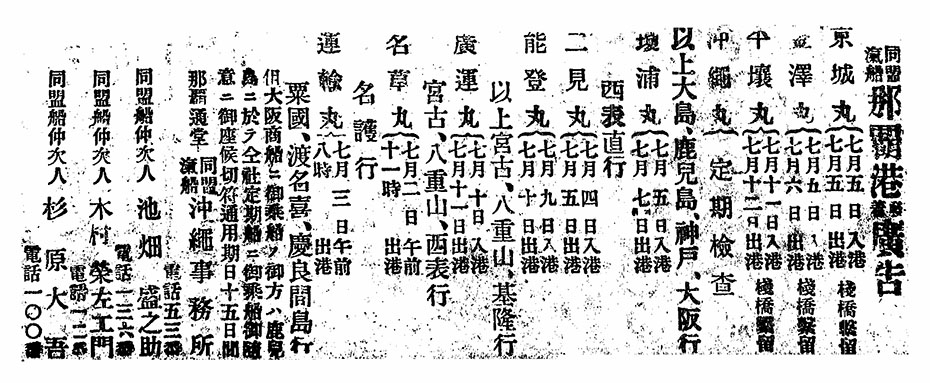 同盟汽船 那覇港發着廣告
京城丸 七月五日入港 七月五日出港 棧橋繫留
金澤丸 七月五日入港 七月六日出港 棧橋繫留
平壤丸 七月十一日入港 七月十二日出港 棧橋繫留
沖繩丸 定期檢査
以上大島、鹿兒島、神戸、大阪行
壇浦丸 七月五日入港 七月七日出港
西表直行
二見丸 七月四日入港 七月五日出港
能登丸 七月九日入港 七月十日出港
以上宮古、八重山、基隆行
廣運丸 七月十日入港 七月十一日出港
宮古、八重山、西表行
名草丸 七月二日午前十一時出港
名護行
運輸丸 七月三日午前八時出港
粟國、渡名喜、慶良間島行
但大阪商船ニ御乘船ノ御方ハ鹿兒
島ニ於テ仝社定期船ニ御乘船御隨
意ニ御座候切符通用期日十五日間
那覇通堂 同盟汽船 沖繩事務所
電話五三番
同盟船仲次人 池畑盛之助
電話一三六番
同盟船仲次人 木村榮左工門
電話一二番
同盟船仲次人 杉原大吾
電話一〇〇番